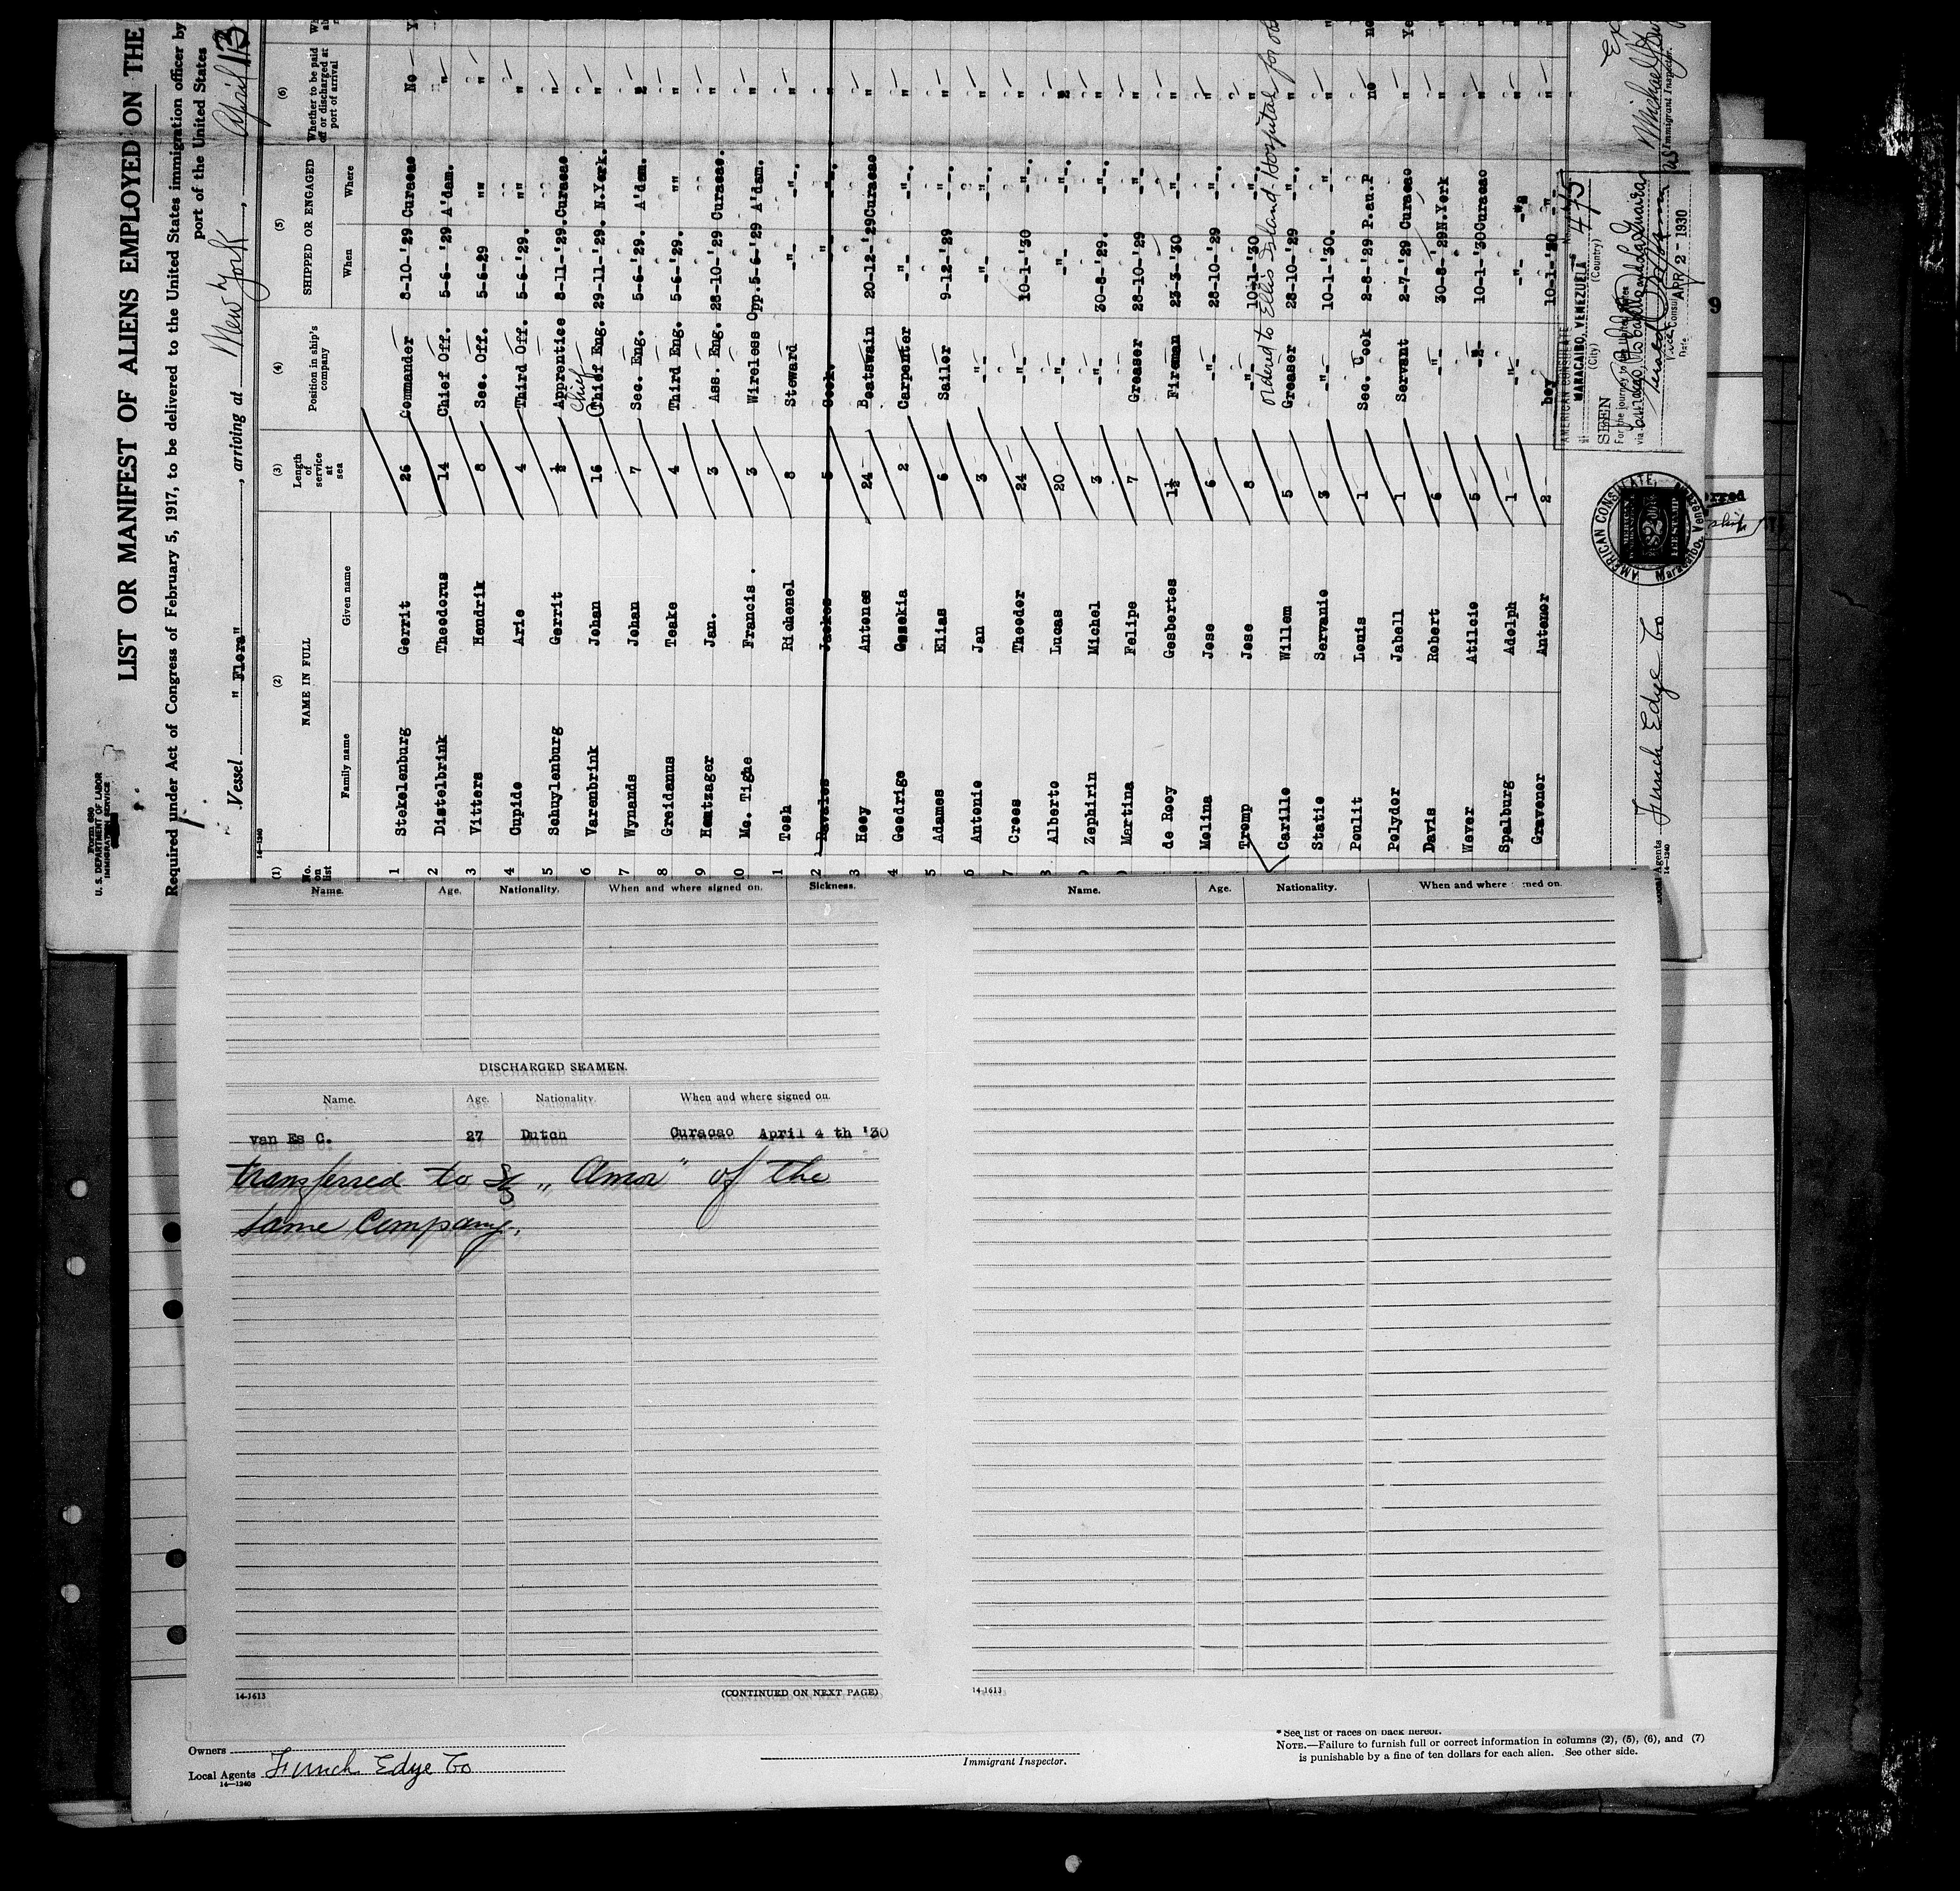 Form 680
U. S. DEPARTMENT OF LABOR
IMMIGRATION SERVICE
LIST OR MANIFEST OF ALIENS EMPLOYED ON THE
Required under Act of Congress of February 5, 1917, to be delivered to the United States immigration officer by
port of the United States
Vessel "Flora", arriving at New York, April 13
14-1240
(1) (2) (3) (4) (5) (6)
No. on list NAME IN FULL Length of service at sea Position in ship's company SHIPPED OR ENGAGED Whether to be paid off or discharged at port of arrival
Family name Given name When Where
1 Stekelenburg Gerrit 26 Commander 8-10-'29 Curacao No
2 Distelbrink Theodorus 14 Chief Off. 5-6-'29 A'dam. "
3 Vitters Hendrik 8 Sec. Off. 5-6-29 "" "
4 Cupido Arie 4 Third Off. 5-6-'29. "" "
5 Schuylenburg Gerrit ½ Apprentice 8-11-'29. Curacao "
6 Varenbrink Johan 16 Chief Eng. 29-11-'29. N.York. "
Chief
7 Wynands Johan 7 Sec. Eng. 5-6-'29. A'dam. "
8 Greidanus Teake 4 Third Eng. 5-6-'29. "" "
9 Hemtzager Jan. 3 Ass. Eng. 28-10-'29 Curacao. "
0 Mc. Tighe Francis. 3 Wireless Opp. 5-6-'29 A'dam. "
1 Tosh Richenel 8 Steward -"- -"-. "
2 Davales Jacobus 5 Cook. " -"-. "
3 Hooy Antones 24 Boatswain 20-12-'29 Curacao "
4 Goedrige Gezekia 2 Carpenter -"- -"-. "
5 Adames Elias 6 Sailor 9-12-'29 -"-. "
6 Antonie Jan 3 -"- -"- -"-. "
7 Croes Theodor 24 -"- 10-1-'30 -"-. "
8 Alberto Lucas 20 -"- -"- -"-. "
9 Zephirin Michel 3 -"- 30-8-'29. -"-. "
Martina Felipe 7 Greaser 28-10-'29 -"- "
de Rooy Gesbertes 1½ Fireman 23-3-'30 -"- "
Molina Jose 6 -"- 28-10-'29 -"-. "
Tromp Jose 8 -"- 10-1-'30 -"-. "
ordered to Ellis Island Hospital for
Carillo Willem 5 Greaser 28-10-'29 -"-. "
Statie Servanie 3 -"- 10-1-'30. -"- "
Poulit Louis 1 Sec. Cook 2-8-'29 P.au.P no
Polydor Jabell 1 Servant 2-7-'29 Curacao "
Davis Robert 6 -"- 30-8-'29 N.York "
Wever Atilcio 5 -"- 10-1-'30 Curacao "
Spalburg Adolph 1 -"- -"- -"- "
Gravenor Antenor 2 boy 10-1-'30 -"- "
AMERICAN CONSULATE
MARACAIBO, VENEZUELA
(City) (Country)
475
SEEN
For the journey to the United States
via
Vice Consul
Date APR 2 - 1930
AMERICAN CONSULATE, Maracaibo, Venezuela
Immigrant Inspector.
Local Agents Funch Edye Co
14-1240
9
Name. Age. Nationality. When and where signed on. Sickness.
DISCHARGED SEAMEN.
Name. Age. Nationality. When and where signed on.
van Es C. 27 Dutch Curacao April 4 th '30
transferred to SS „ Amor" of the
same Company.
14-1613 (CONTINUED ON NEXT PAGE)
Name. Age. Nationality. When and where ned on.
14-1613
* See list of races on back hereof.
NOTE.—Failure to furnish full or correct information in columns (2), (5), (6), and (7)
is punishable by a fine of ten dollars for each alien. See other side.
Owners
Local Agents Funch Edye Co
14-1240
Immigrant Inspector.